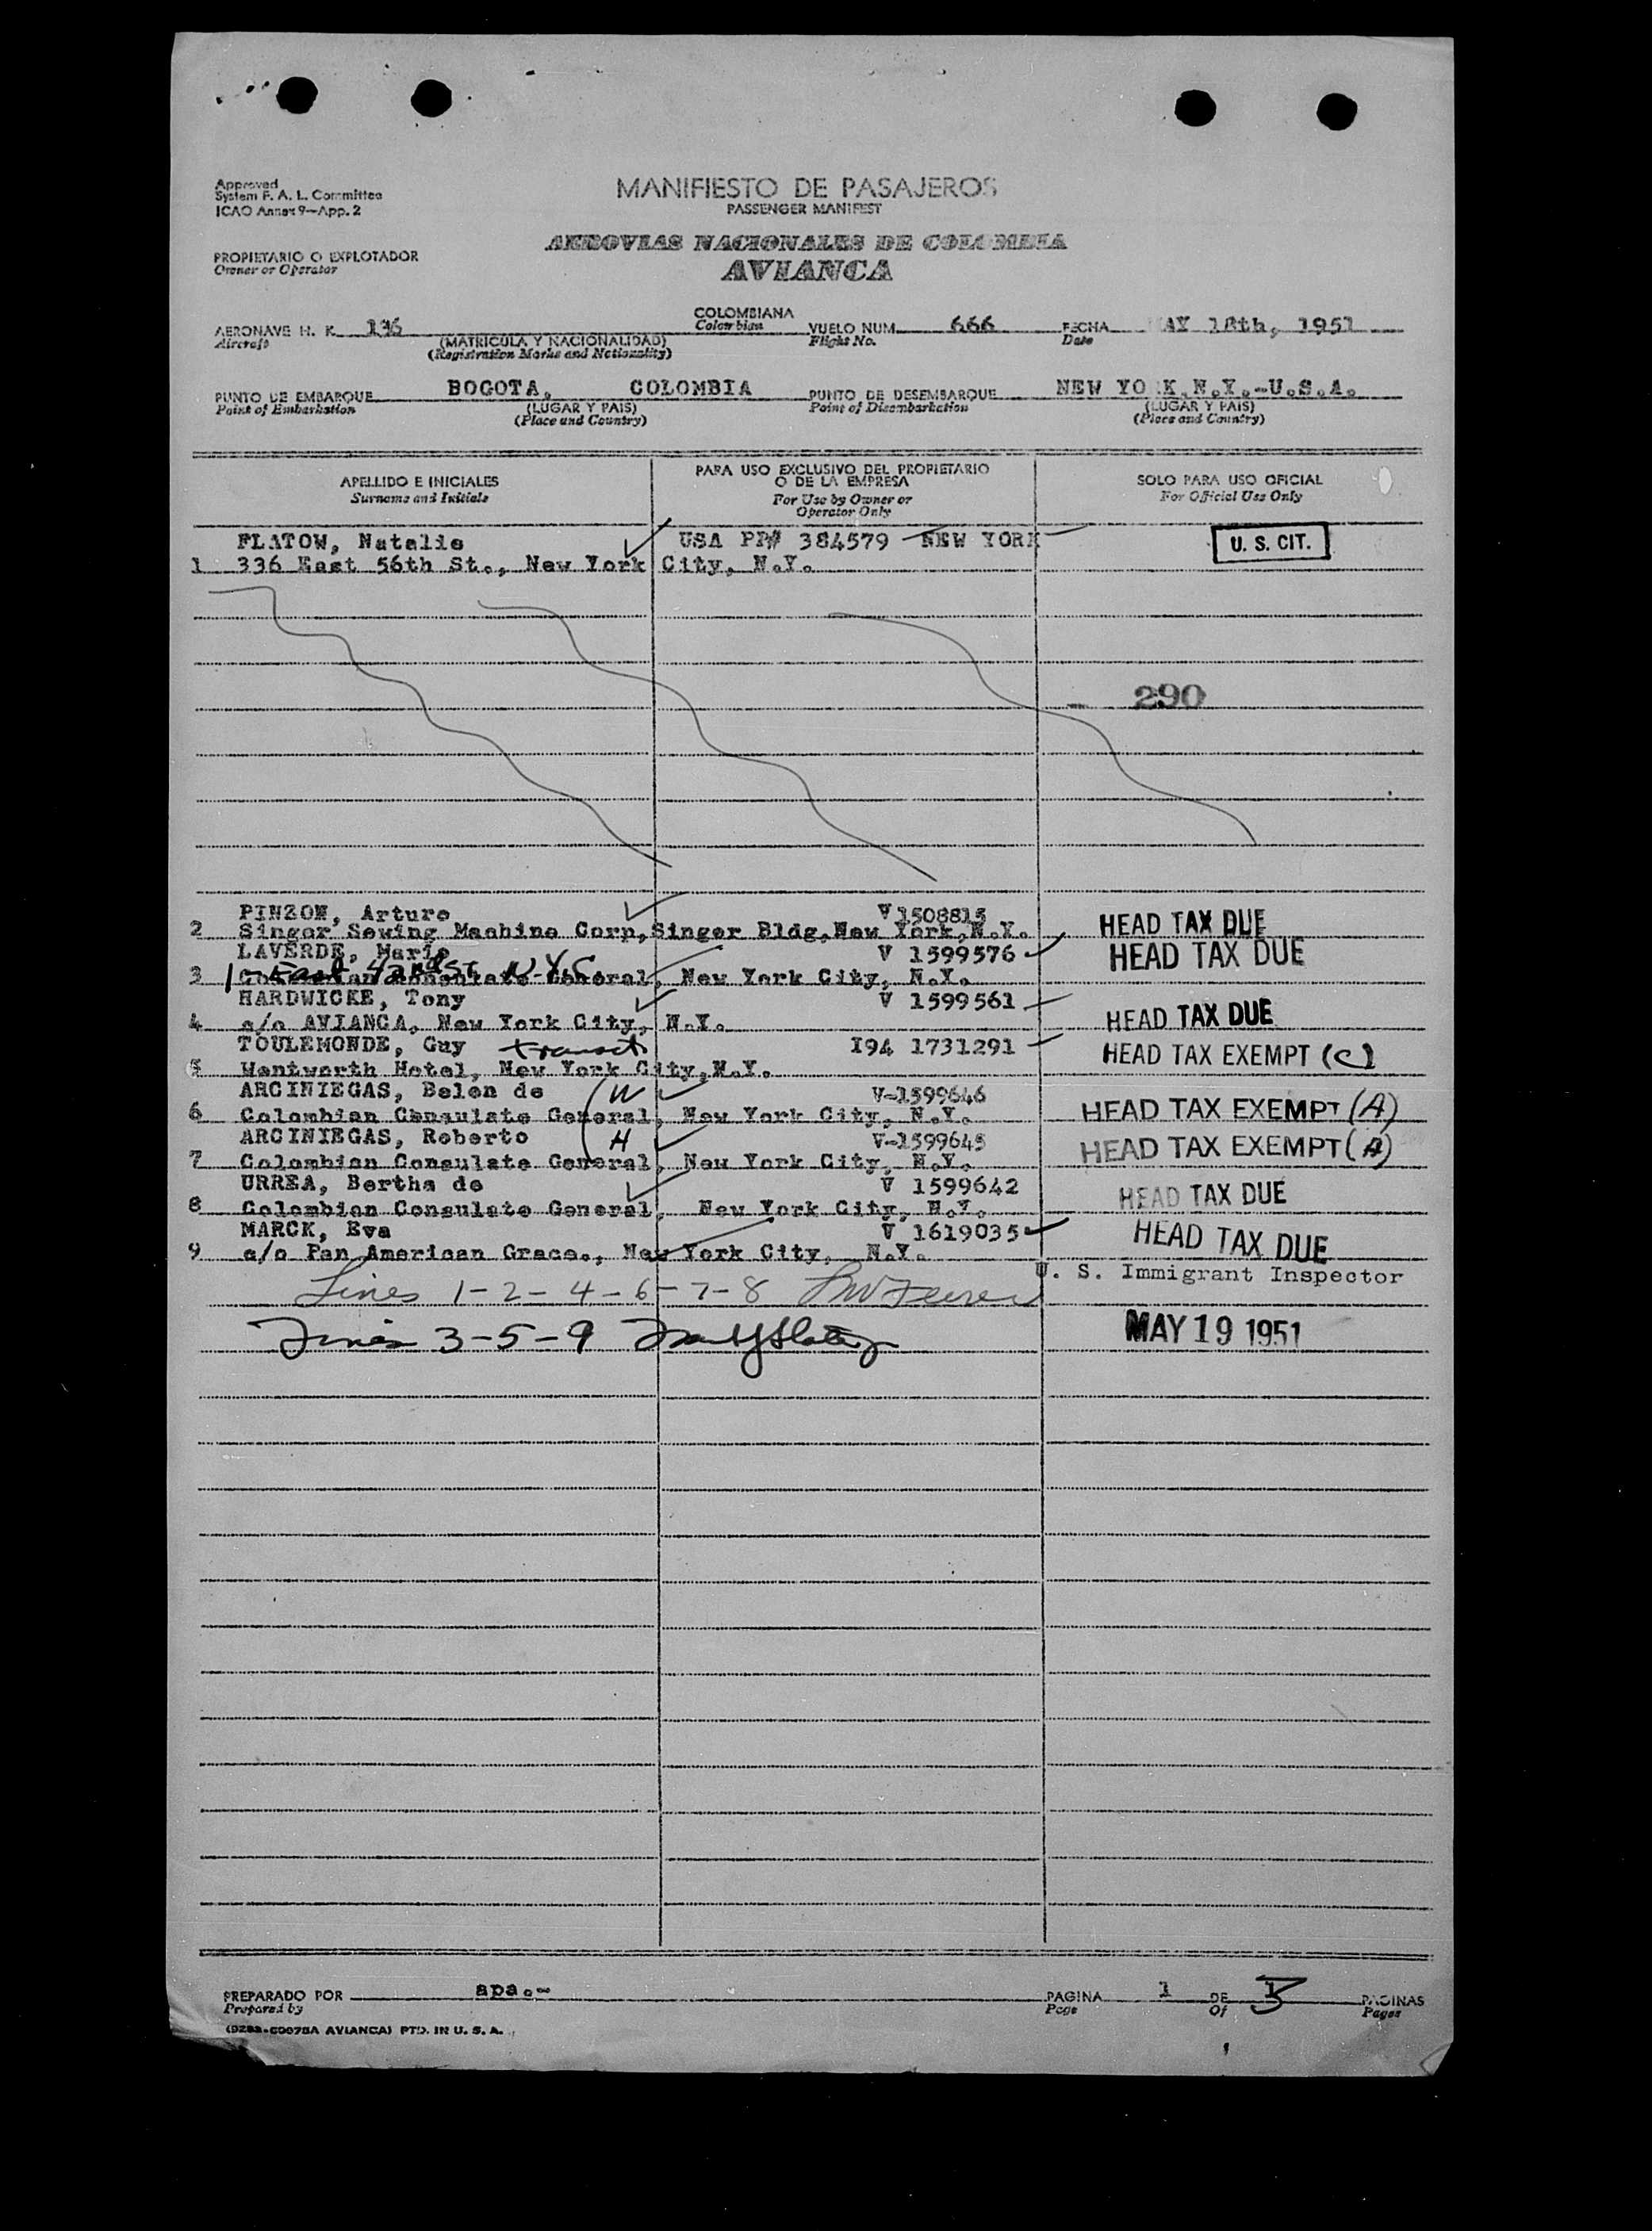 Approved
System F. A. L. Committee
ICAO Annex 9—App. 2
MANIFIESTO DE PASAJEROS
PASSENGER MANIFEST
AEROVIAS NACIONALES DE COLOMBIA
AVIANCA
PROPIETARIO O EXPLOTADOR
Owner or Operator
AERONAVE H. K. 136 COLOMBIANA VUELO NUM. 666 FECHA MAY 18th, 1951
Aircraft (MATRICULA Y NACIONALIDAD) Colombian Flight No. Date
(Registration Marks and Nationality)
PUNTO DE EMBARQUE BOGOTA, COLOMBIA PUNTO DE DESEMBARQUE NEW YO K,N.Y.-U.S.A.
Point of Embarkation (LUGAR Y PAIS) Point of Disembarkation (LUGAR Y PAIS)
(Place and Country) (Place and Country)
APELLIDO E INICIALES
Surname and Initials
PARA USO EXCLUSIVO DEL PROPIETARIO
O DE LA EMPRESA
For Use by Owner or
Operator Only
SOLO PARA USO OFICIAL
For Official Use Only
FLATOW, Natalie USA PP# 384579 NEW YORK U. S. CIT.
1 336 East 56th St., New York City, N.Y.
290
PINZON, Arturo V 1508815
2 Singer Sewing Machine Corp,Singer Bldg,New York,N.Y. HEAD TAX DUE
LAVERDE, Marie V 1599576 HEAD TAX DUE
3 General, New York City, N.Y.
East 42nd St. N.Y.C.
HARDWICKE, Tony V 1599561
4 c/o AVIANCA, New York City, N.Y. HEAD TAX DUE
TOULEMONDE, Guy transit I94 1731291 HEAD TAX EXEMPT (C)
5 Wentworth Hotel, New York City,N.Y.
ARCINIEGAS, Belen de (W V-1599646
6 Colombian Consulate General, New York City, N.Y. HEAD TAX EXEMPT (A)
ARCINIEGAS, Roberto H V-1599645 HEAD TAX EXEMPT (A)
7 Colombian Consulate General, New York City, N.Y.
URREA, Bertha de V 1599642 HEAD TAX DUE
8 Colombian Consulate General, New York City, N.Y.
MARCK, Eva V 1619035 HEAD TAX DUE
9 c/o Pan American Grace., New York City, N.Y.
U. S. Immigrant Inspector
Lines 1-2-4-6-7-8
Lines 3-5-9
MAY 19 1951
PREPARADO POR apa.- PAGINA 1 DE PAGINAS
Prepared by Page Of Pages
AVIANCA) PTD. IN U. S. A.